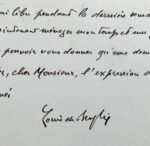 libre pendant la dernière
maintenant ménager mon temps et me
pouvoir vous donner qu'une
, cher Monsieur, l'expression d

Louis de Broglie